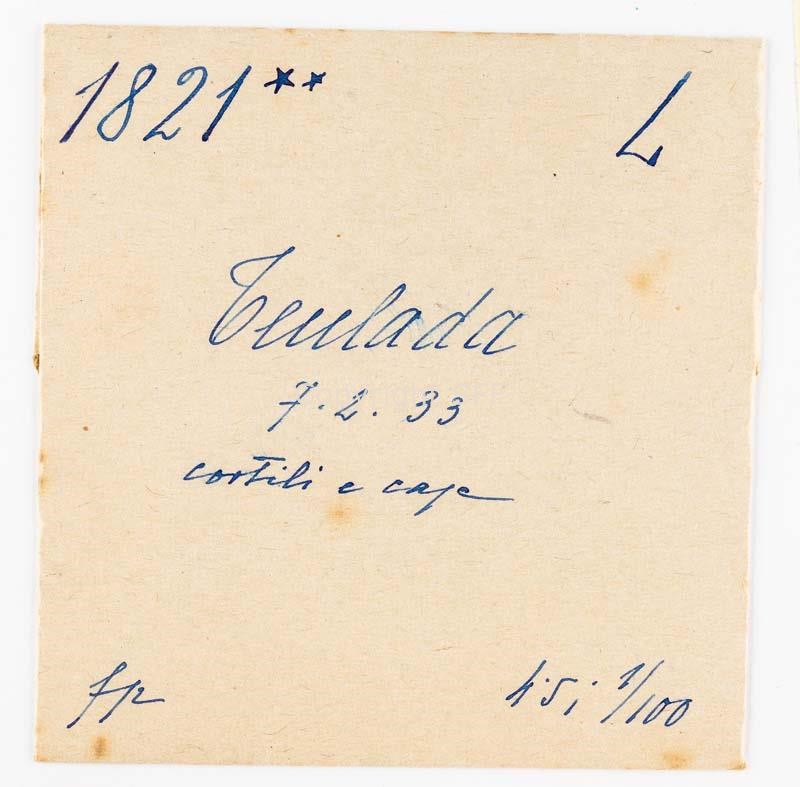 1821** L
Teulada
7.2.33
cortili e case
fp 4.5; 1/100